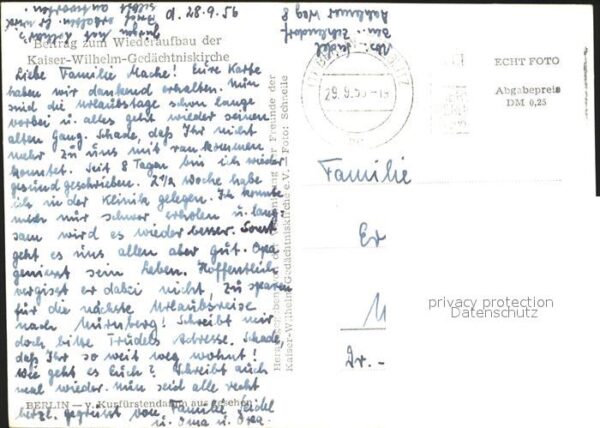 D. 28.9.56
Beitrag zum Wiederaufbau der
Kaiser-Wilhelm-Gedächtniskirche
Liebe Familie Mache! Eure Karte
haben wir dankend erhalten. Nun
sind die Urlaubstage schon lange
vorbei u. alles geht wieder seinen
alten Gang. Schade, daß Ihr nicht
mehr zu uns mit ran kommen
konntet. Seit 8 Tagen bin ich wieder
gesund geschrieben. 2½ Woche habe
ich in der Klinik gelegen. Ich konnte
mich nur schwer erholen u. lang-
sam wird es wieder besser. Sonst
geht es uns allen aber gut. Opa
geniesst sein Leben. Hoffentlich
vergisst er dabei nicht, zu sparen
für die nächste Urlaubsreise
nach Nürnberg! Schreibt mir
doch bitte Trudels Adresse. Schade,
daß Ihr so weit weg wohnt!
Wie geht es Euch? Schreibt auch
mal wieder. Nun seid alle recht
BERLIN — v. Kurfürstendamm aus gesehen
herzl. gegrüsst von Familie Seidel
u. Oma u. Opa.
Herausgegeben von der Vereinigung der Freunde der
Kaiser-Wilhelm-Gedächtniskirche e.V. — Foto: Schnelle
29.9.56-18
ECHT FOTO
Abgabepreis
DM 0,25
Familie
Er
M
Dr.-
privacy protection
Datenschutz